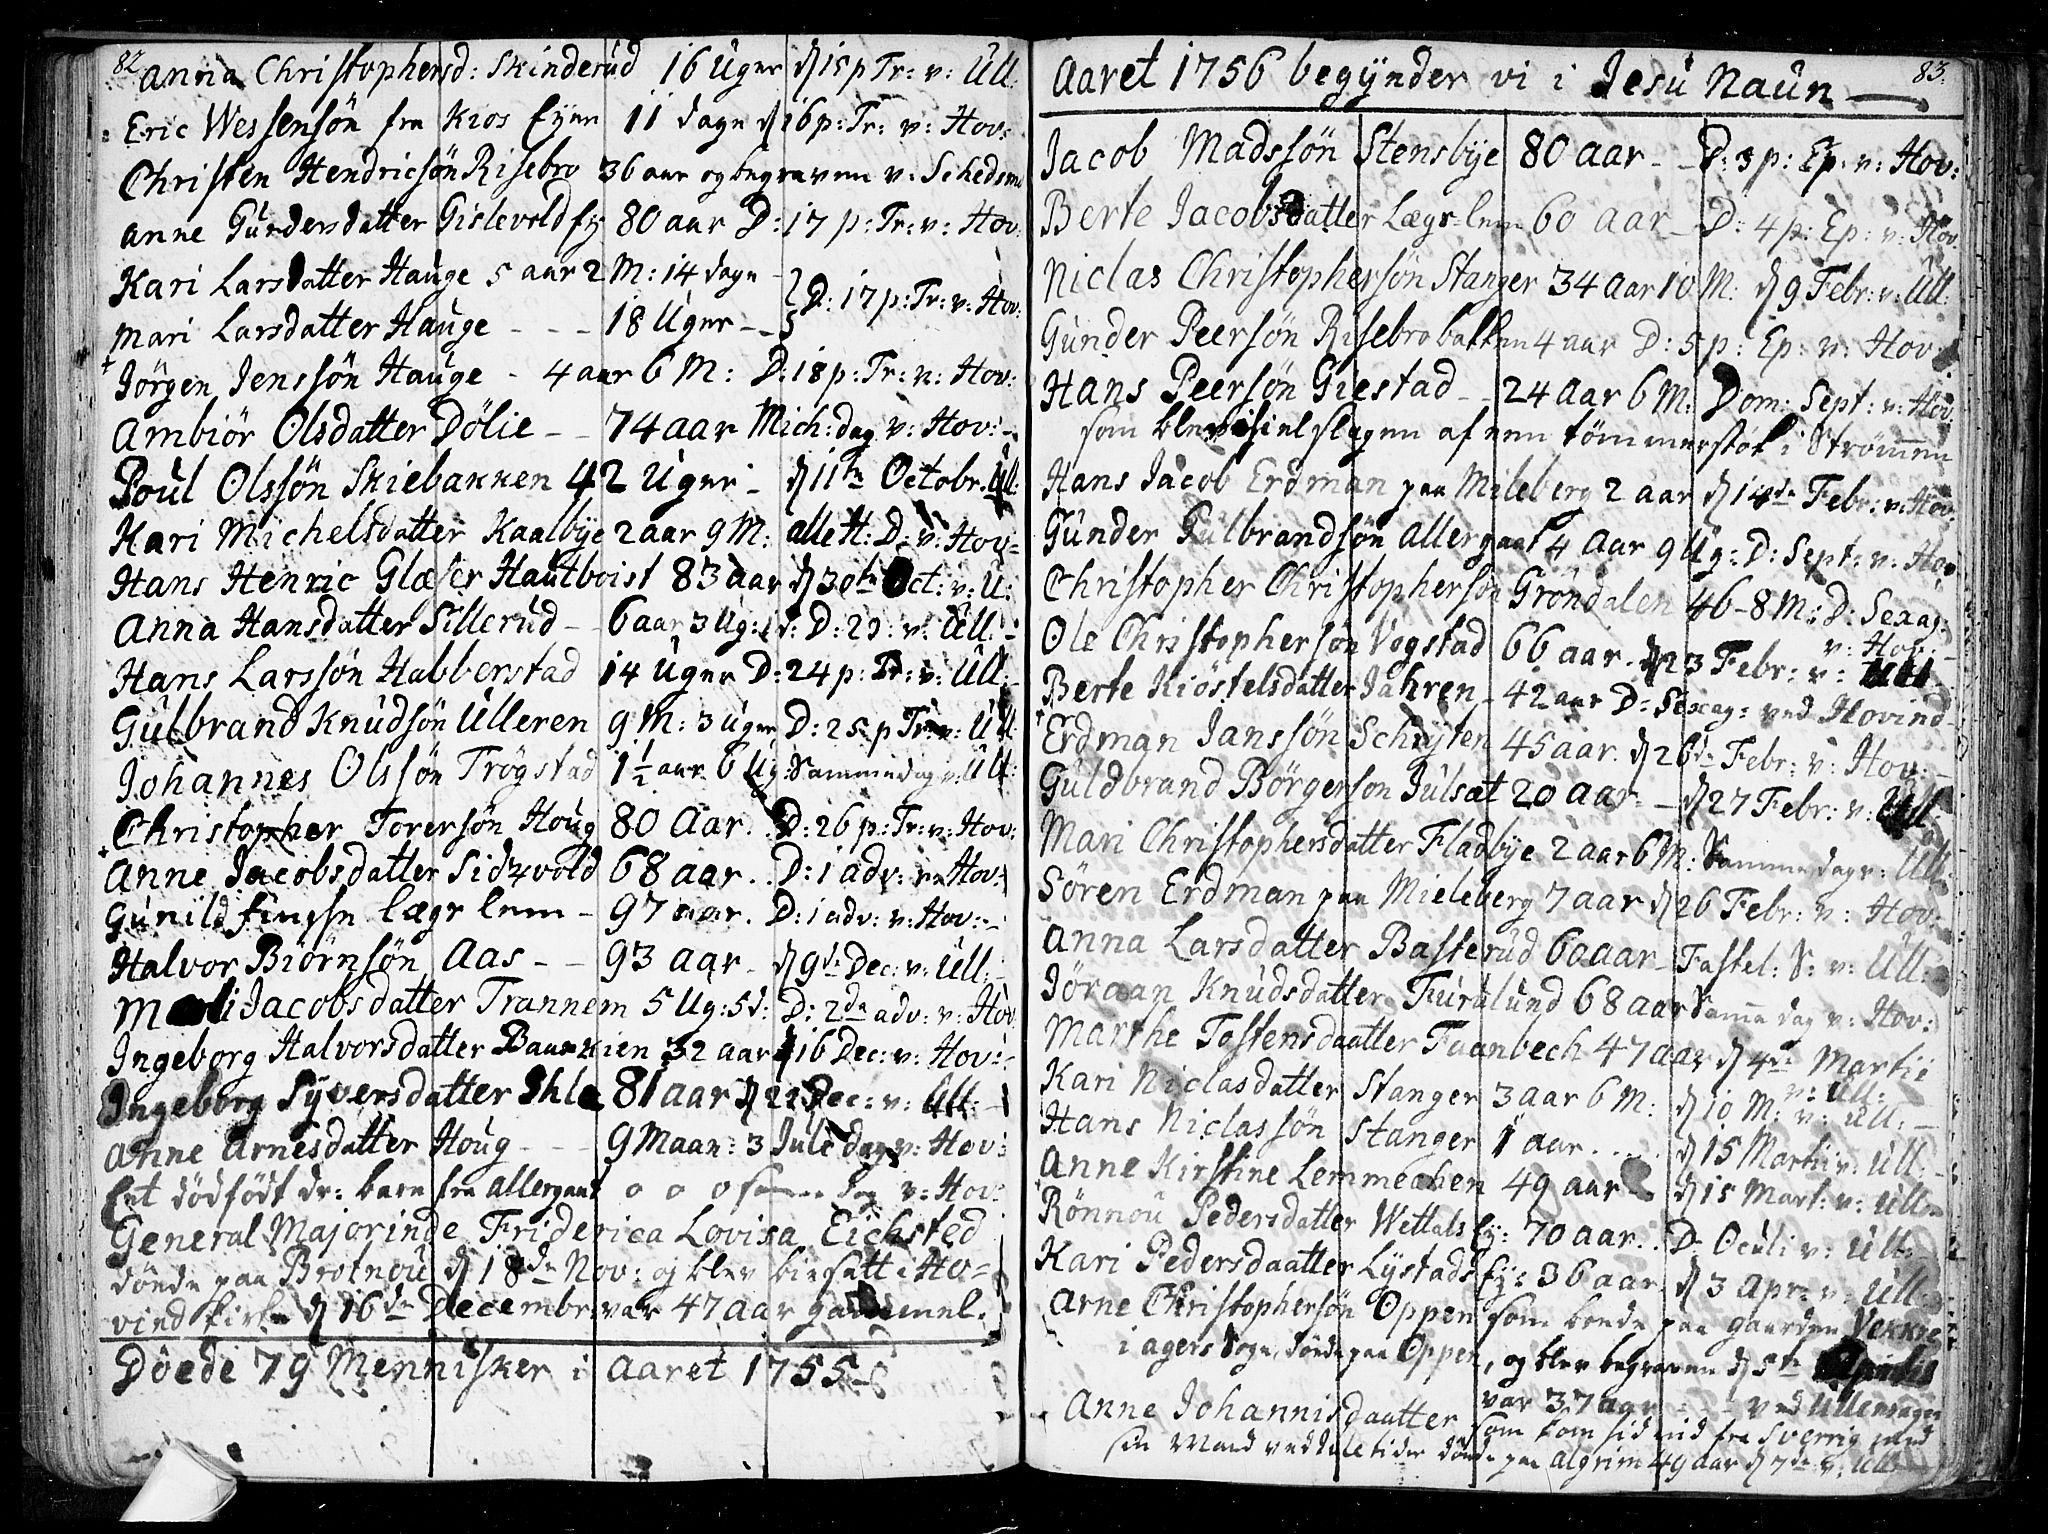 82.
Anna Christophersd: Skinderud 16 Uger d 15 p Tr: v: Ull.
Eric Wessensön fra Kios Eyer 11 dage d 16 p: Tr: v: Hov:
Christen Hendricsön Risebro 36 aar og begraven v: Schedsm
Anne Gundersdatter Gislevold fz 80 aar D: 17 p: Tr: v: Hov:
Kari Larsdatter Hauge 5 aar 2 M: 14 dage
D: 17 p: Tr: v: Hov:
Mari Larsdatter Hauge - - - 18 Uger - -
Jörgen Jenssön Hauge - 4 aar 6 M: D: 18 p: Tr: v: Hov:
Ambiör Olsdatter Dölie - - 74 aar Mich: dag v: Hov: -
Poul Olssön Skiebakken 42 Uger - d 11te Octobr. Ull.
Kari Michelsdatter Kaalbye 2 aar 9 M: alle H: D: v: Hov=
Hans Henric Glæser Hautboist 83 aar d 30te Oct: v: U:
Anna Hansdatter Sillerud - - 6 aar 3 Ug: D: 23: v: Ull: -
Hans Larssön Habberstad 14 Uger D: 24 p: Tr: v: Ull: -
Gulbrand Knudsön Ulleren 9 M: 3 Uger D: 25 p Tr: v: Ull
Johannes Olssön Trögstad 1½ aar 6 Ug: Samme dag v: Ull:
Christopher Torersön Houg 80 Aar. D: 26 p: Tr: v: Hov:
Anne Jacobsdatter Sidzvold 68 aar. . D: 1 adv: v: Hov:
Gunild lægs lem - 97 aar. D: 1 adv: v: Hov: -
Halvor Biörnsön Aas - - 93 aar - d 9de Dec: v: Ull: -
Mari Jacobsdatter Trannem 5 Ug: 5 d: D: 2de adv: v: Hov
Ingeborg Halvorsdatter Baukien 32 aar d 16 Dec: v: Hov: -
Ingeborg Syversdatter Ihle 81 aar d 22 Dec: v: Ull: -
Anne Arnesdatter Houg - - - 9 Maan: 3 Jule dag v: Hov:
Eet dödfödt dr: barn fra Allergaat o o o samme dag v: Hov:
General Majorinde Friderica Lovisa Eichsted
döede paa Brotnou d 18de Nov: og blev biesatt i Ho=
vind kirke d 16de Decembr: var 47 aar gammel.
Döede 79 Mennisker i Aaret 1755
83.
Aaret 1756 begynder vi i Jesu Naun
Jacob Madssön Stensbye 80 aar - - D: 3 p: Ep. v: Hov:
Berte Jacobsdatter Lægs-lem 60 aar - D: 4 p: Ep: v: Hov.
Niclas Christophersön Stanger 34 aar 10 M: d 9 Febr: v: Ull:
Gunder Peersön Risebrobakken 4 aar D: 5 p: Ep: v: Hov
Hans Peersön Giestad - - 24 aar 6 M: Dom: Sept: v: Hov.
som blev ihielslagen af een tömmerstok i Strömmen
Hans Jacob Erdman paa Mileberg 2 aar d 14de Febr: v: Hov:
Gunder Gulbrandsön Allergaat 4 aar 9 Ug: D: Sept: v: Hov
Christopher Christophersön Gröndalen 46 - 8 M: D: Sexag:
v: Hov: -
Ole Christophersön Vogstad 66 aar. d 23 Febr: v:
Berte Kiöstelsdatter Jahren - 42 aar D: Sexag: ved Hovind
Erdman Janssön Schyten 45 aar. d 26de Febr: v: Hov: -
Guldbrand Börgerson Julsæt 20 aar - d 27 Febr: v: Ull.
Mari Christophersdatter Fladbye 2 aar 6 M: Samme dag v: Ull:
Sören Erdman paa Mieleberg 7 aar d 26 Febr: v: Hov:
Anna Larsdatter Basterud 60 aar - Fastel: S: v: Ull:
Jöraan Knudsdatter Furulund 68 aar Samme dag v: Hov:
Marthe Tostensdaatter Faanbech 47 aar d 4de Martii
v: Ull:
Kari Niclasdatter Stanger 3 aar 6 M: d 10 M: v: Ull: -
Hans Niclassön Stanger 1 aar . . . . d 15 Martii v: Ull: -
Anne Kirstine Lemmechen 49 aar d 15 Mart: v: Ull
Rönnou Pedersdatter Wettals fz: 70 aar. . D: Oculi v: Ull: -
Kari Pedersdaatter Lystads fz: 36 aar d 3 Apr: v: Ull:
Arne Christophersön Oppen som boede paa gaarden Vekkie
i Agers Sogn, döede paa Oppen, og blev begraven d 5te Aprilis
var 37 aar - - - ved Ullensager
Anne Johannisdaatter som kom hid ind fra Sverrig med
sin Mand ved Jule tider döede paa Algrim 49 aar d 7de v: Ull: